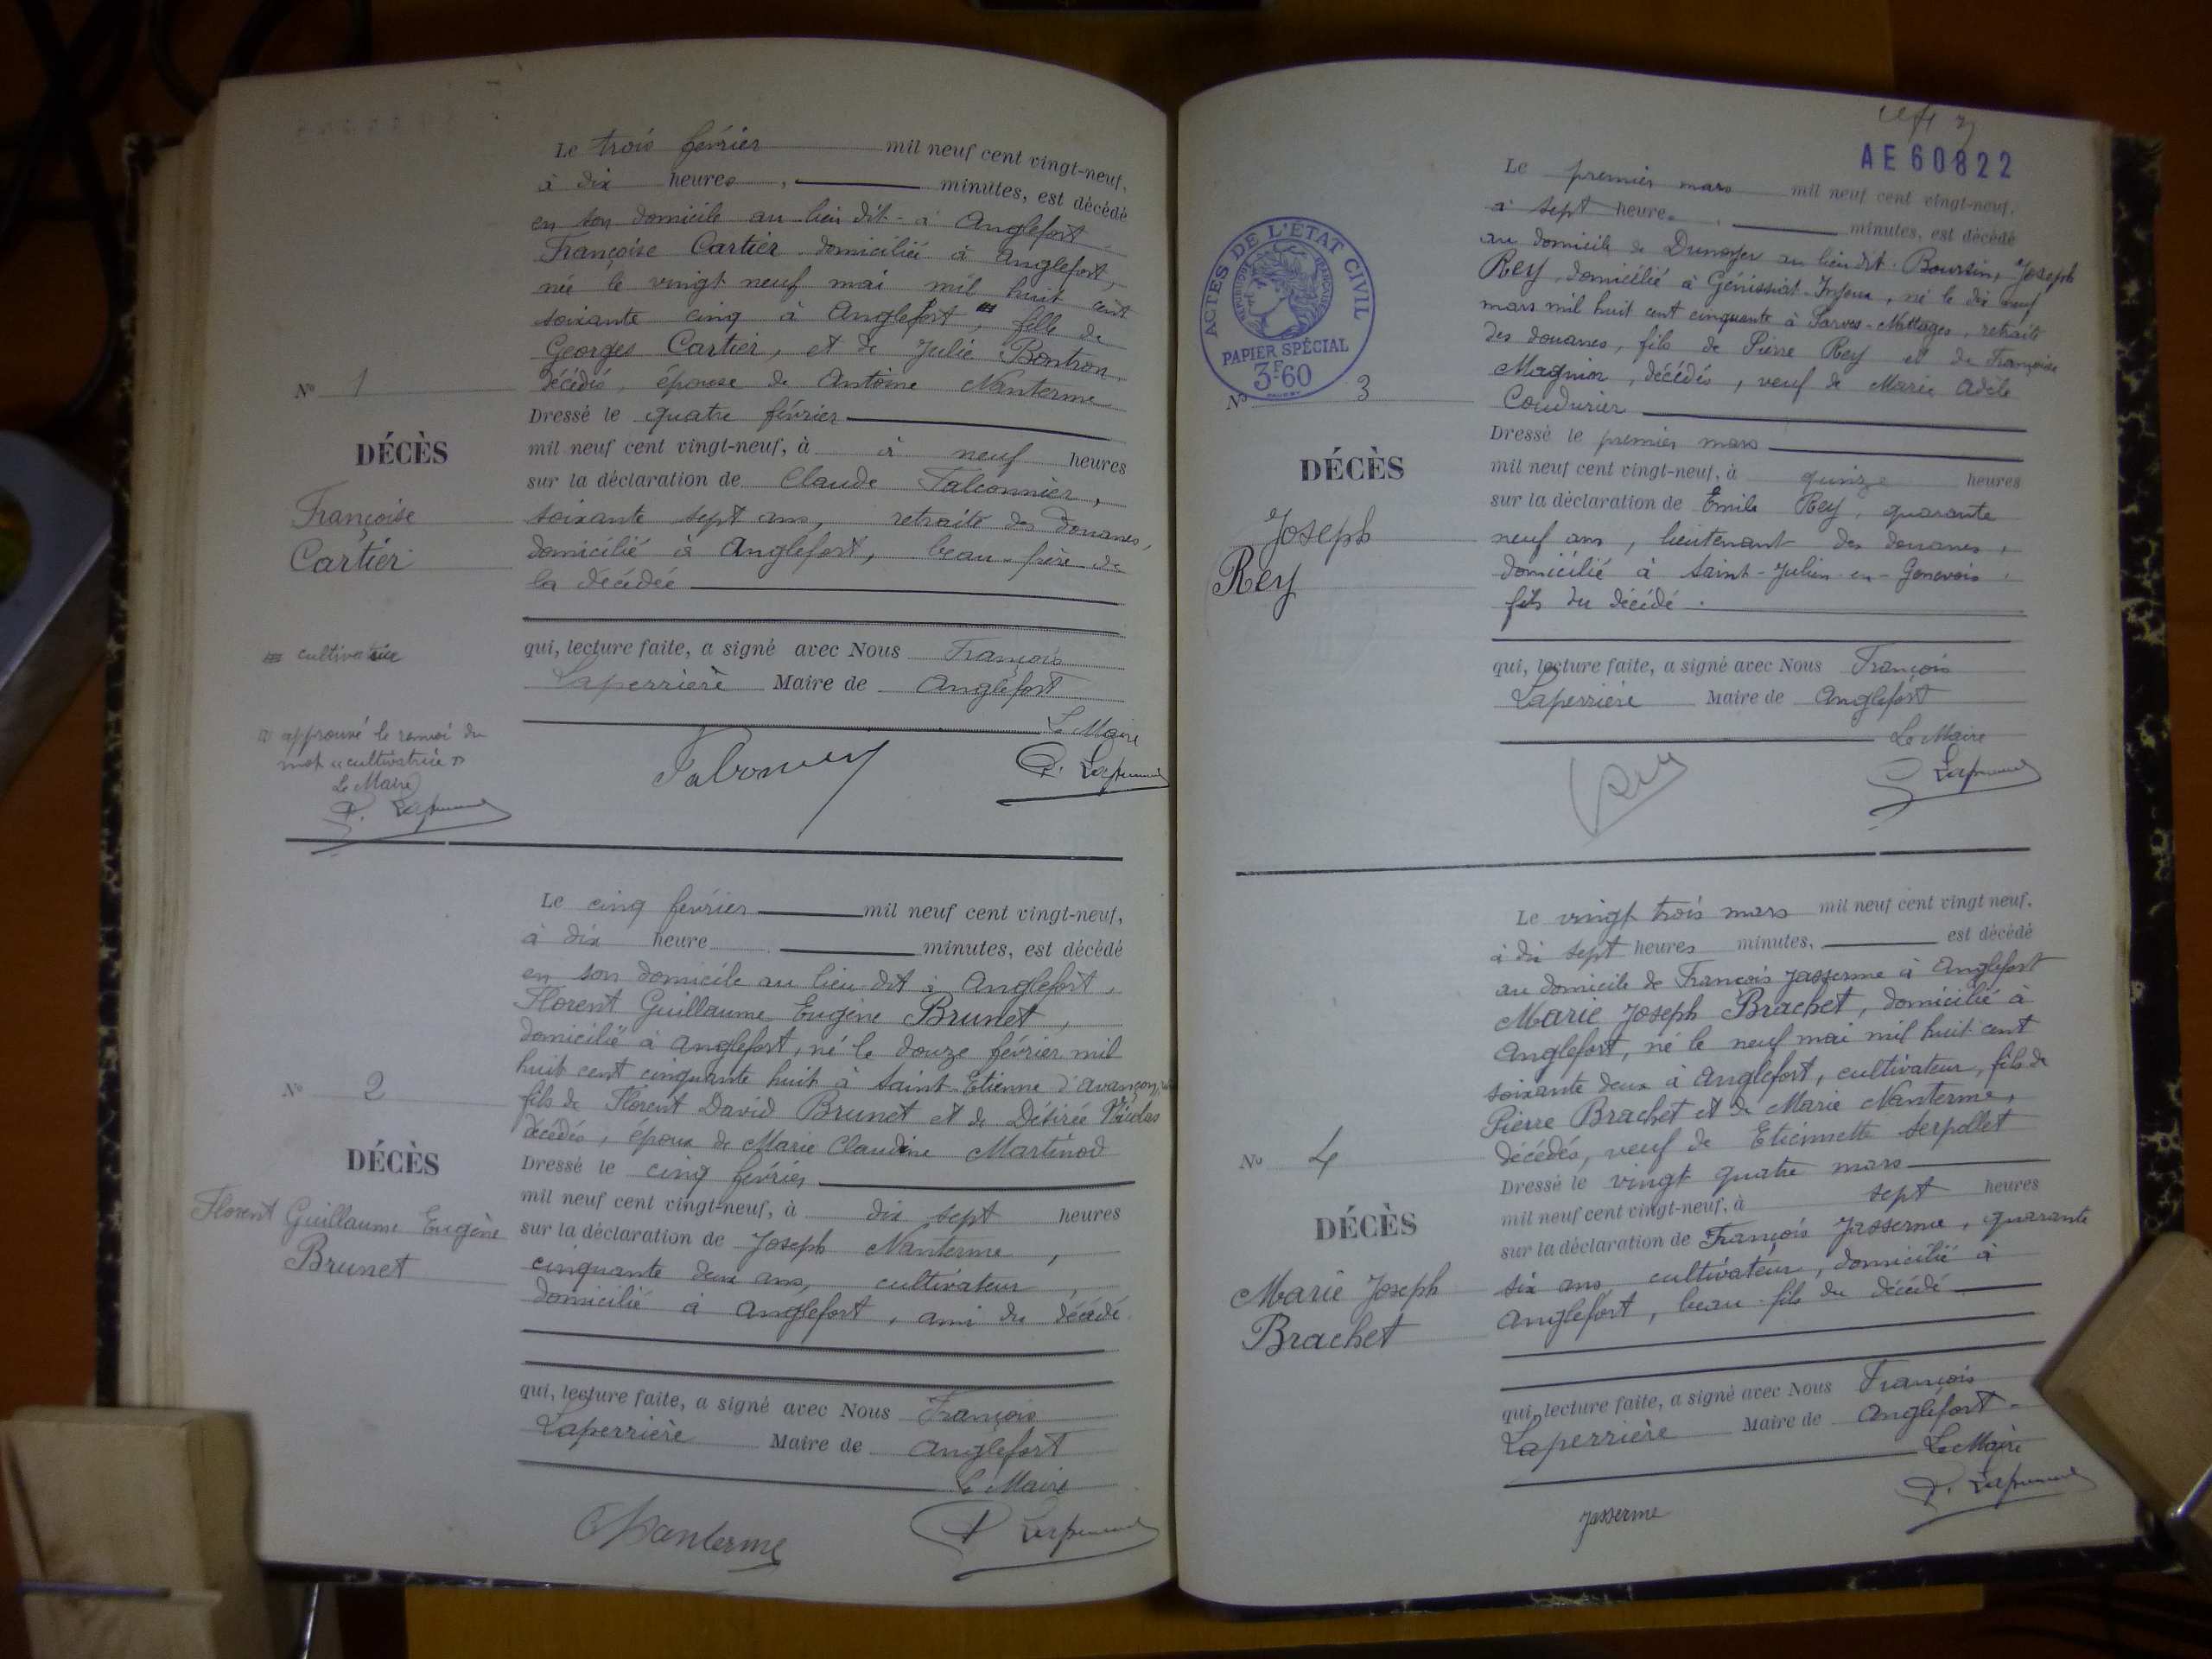 Le trois février mil neuf cent vingt-neuf,
à dix heures, minutes, est décédé
en son domicile au lieu dit à Anglefort
Françoise Cartier domiciliée à Anglefort,
née le vingt neuf mai mil huit cent
soixante cinq à Anglefort, fille de
Georges Cartier, et de Julie Bontron
décédés, épouse de Antoine Nanterme
Dressé le quatre février
mil neuf cent vingt-neuf, à à neuf heures
sur la déclaration de Claude Falconnier,
soixante sept ans, retraité des douanes,
domicilié à Anglefort, beau-frère de
la décédée
qui, lecture faite, a signé avec Nous François
Laperrière Maire de Anglefort
Le Maire
No 1
DÉCÈS
Françoise
Cartier
cultivatrice
approuvé le renvoi du
mot "cultivatrice"
Le Maire
Le cinq février mil neuf cent vingt-neuf,
à dix heure minutes, est décédé
en son domicile au lieu dit à Anglefort,
Florent Guillaume Eugène Brunet,
domicilié à Anglefort, né le douze février mil
huit cent cinquante huit à Saint-Etienne d'Avançon,
fils de Florent David Brunet et de Désirée Nicolas
décédés, époux de Marie Claudine Martinod
Dressé le cinq février
mil neuf cent vingt-neuf, à dix sept heures
sur la déclaration de Joseph Nanterme,
cinquante deux ans, cultivateur,
domicilié à Anglefort, ami du décédé
qui, lecture faite, a signé avec Nous François
Laperrière Maire de Anglefort
Le Maire
Nanterme
No 2
DÉCÈS
Florent Guillaume Eugène
Brunet
AE 60822
ACTES DE L'ÉTAT CIVIL
RÉPUBLIQUE FRANÇAISE
PAPIER SPÉCIAL
3F60
Le premier mars mil neuf cent vingt-neuf,
à sept heures, minutes, est décédé
au domicile de Dunoyer au lieu dit Boursin, Joseph
Rey, domicilié à Génissiat-Injoux, né le dix neuf
mars mil huit cent cinquante à retraité
des douanes, fils de Pierre Rey et de Françoise
Magnin, décédés, veuf de Marie Adèle
Coudurier
Dressé le premier mars
mil neuf cent vingt-neuf, à quinze heures
sur la déclaration de Emile Rey, quarante
neuf ans, lieutenant des douanes,
domicilié à Saint-Julien-en-Genevois,
fils du décédé.
qui, lecture faite, a signé avec Nous François
Laperrière Maire de Anglefort
Le Maire
Rey
No 3
DÉCÈS
Joseph
Rey
Le vingt trois mars mil neuf cent vingt neuf,
à dix sept heures minutes, est décédé
au domicile de François Jasserme à Anglefort
Marie Joseph Brachet, domicilié à
Anglefort, né le neuf mai mil huit cent
soixante deux à Anglefort, cultivateur, fils de
Pierre Brachet et de Marie Nanterme,
décédés, veuf de Etiennette Serpollet
Dressé le vingt quatre mars
mil neuf cent vingt-neuf, à sept heures
sur la déclaration de François Jasserme, quarante
six ans cultivateur, domicilié à
Anglefort, beau-fils du décédé
qui, lecture faite, a signé avec Nous François
Laperrière Maire de Anglefort
Le Maire
Jasserme
No 4
DÉCÈS
Marie Joseph
Brachet